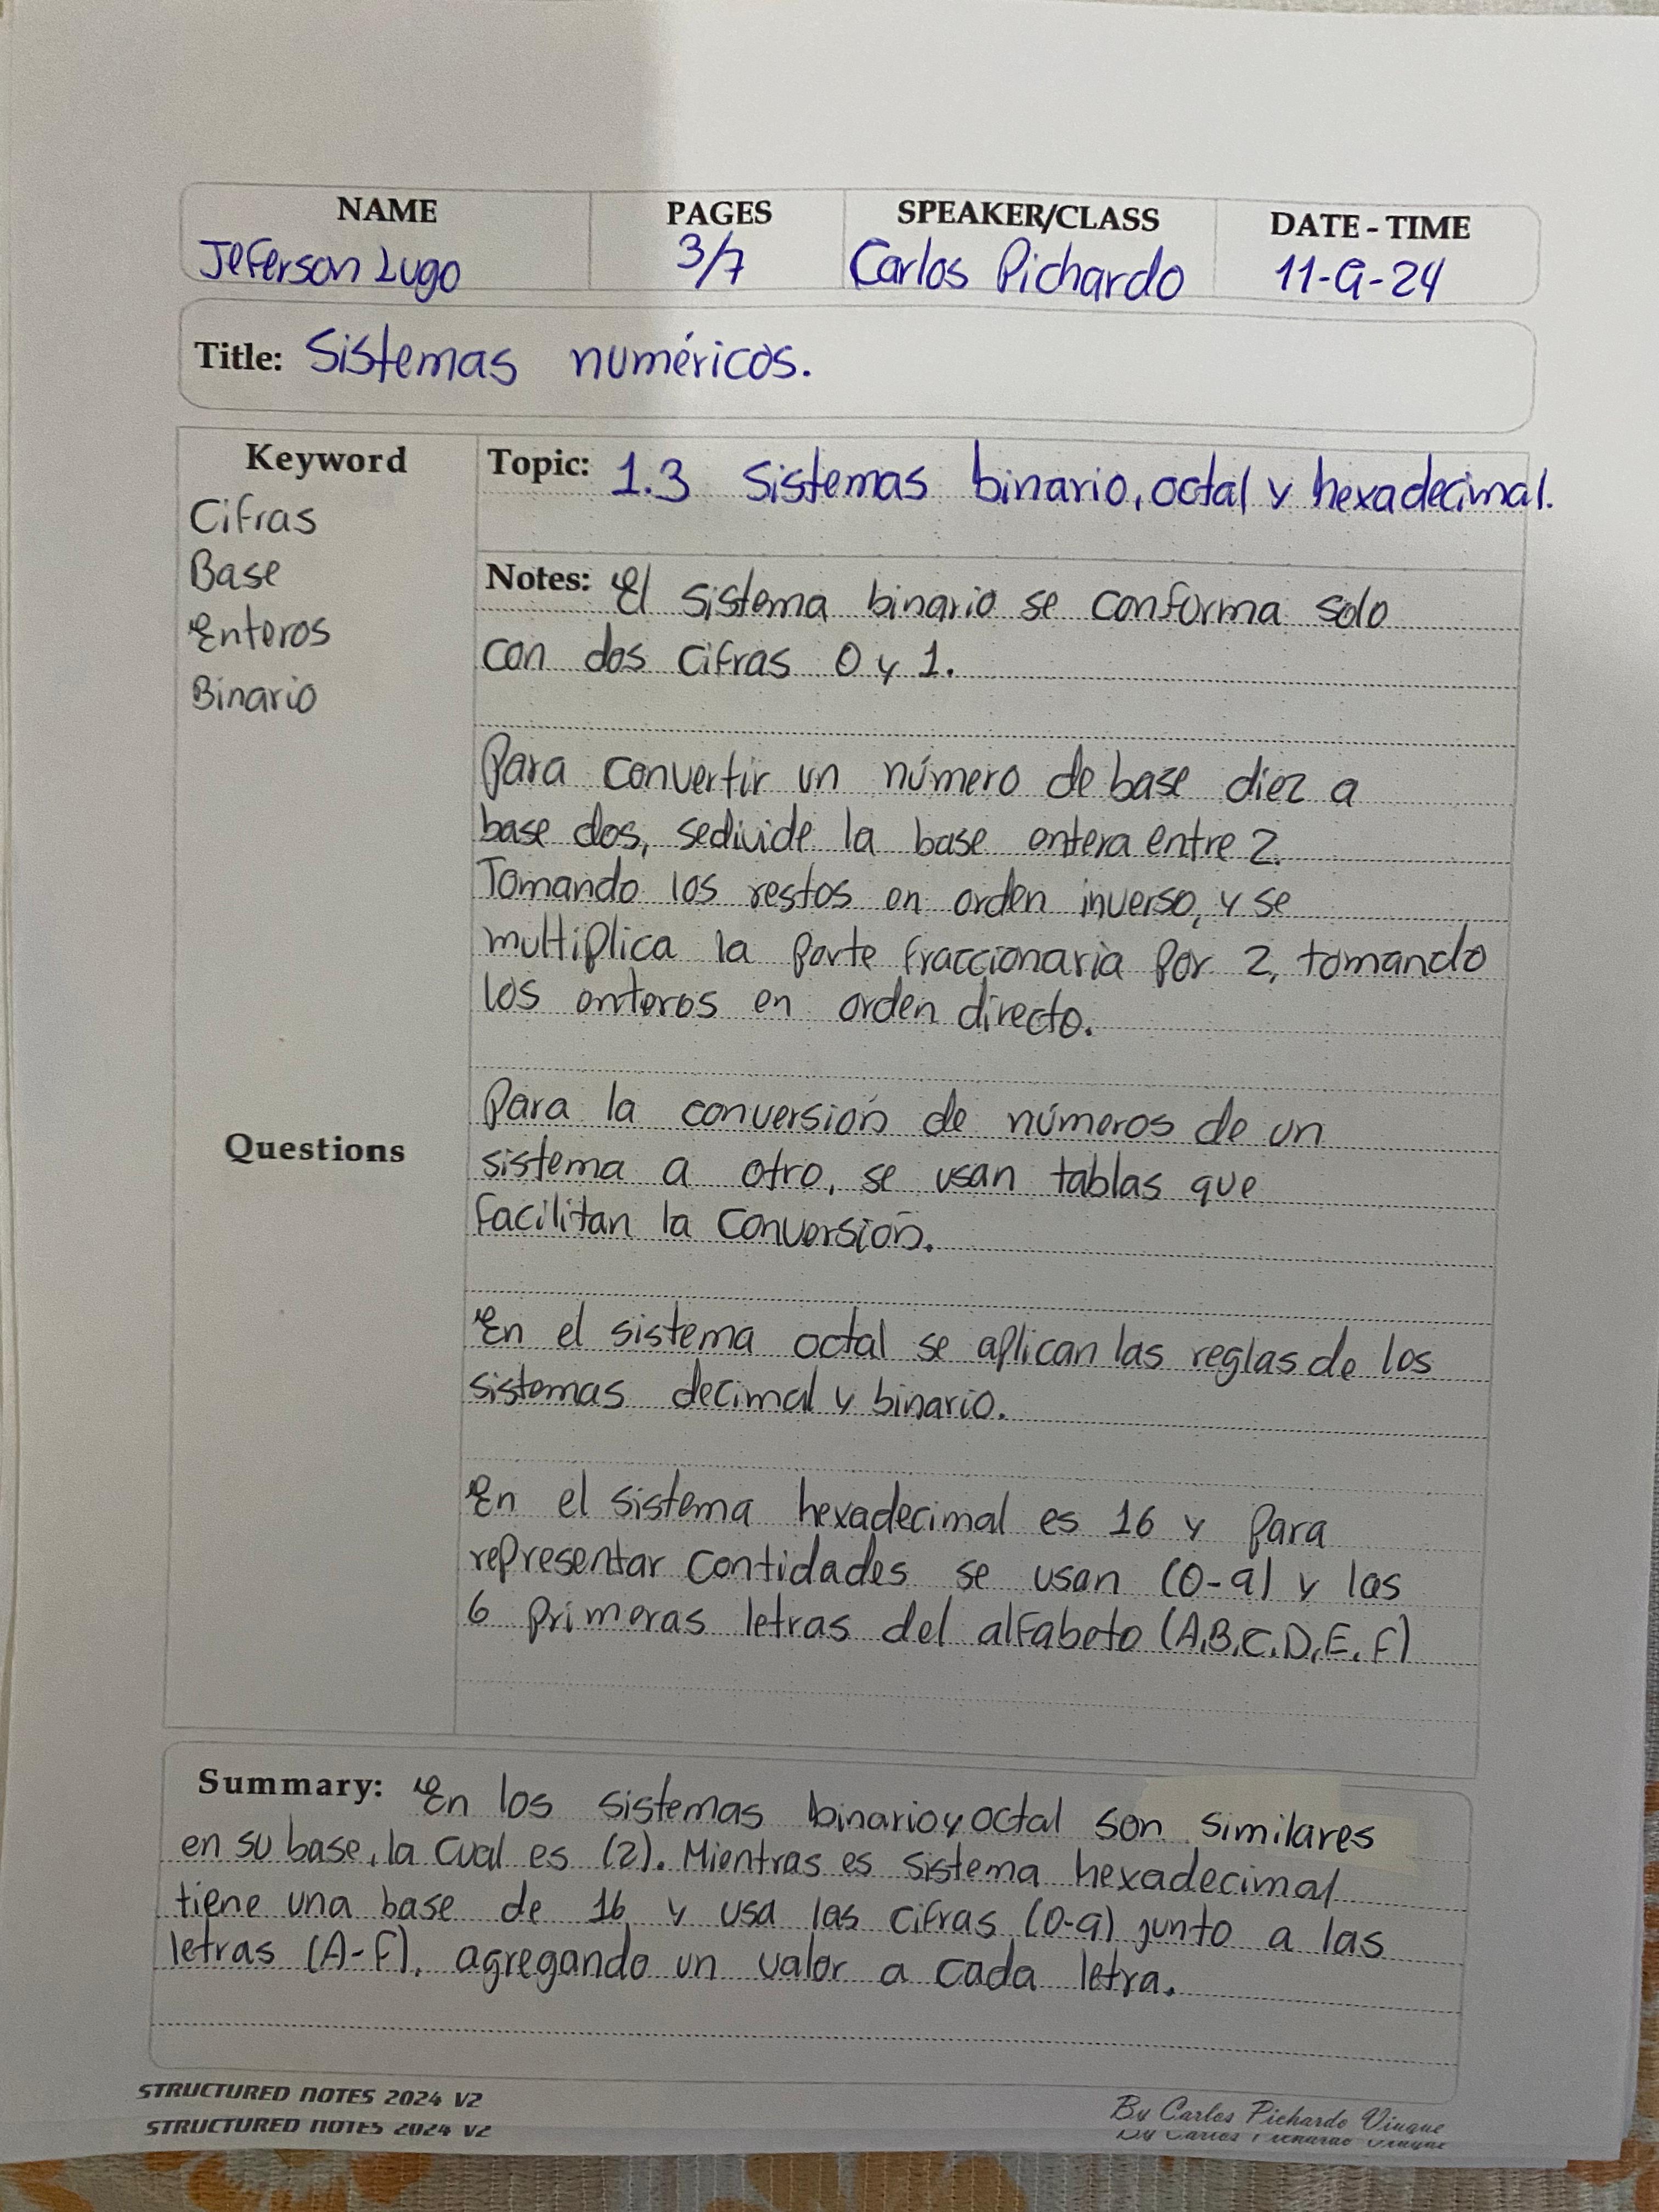 NAME PAGES SPEAKER/CLASS DATE - TIME
Jeferson Lugo 3/7 Carlos Pichardo 11-9-24
Title: Sistemas numéricos.
Keyword
Cifras
Base
Enteros
Binario
Questions
Topic: 1.3 Sistemas binario, octal y hexadecimal.
Notes: El sistema binario se conforma solo
con dos cifras 0 y 1.
Para convertir un número de base diez a
base dos, sedivide la base entera entre 2.
Tomando los restos en orden inverso, y se
multiplica la parte fraccionaria por 2, tomando
los enteros en orden directo.
Para la conversión de números de un
sistema a otro, se usan tablas que
facilitan la conversión.
En el sistema octal se aplican las reglas de los
sistemas decimal y binario.
En el sistema hexadecimal es 16 y para
representar contidades se usan (0-9) y las
6 primeras letras del alfabeto (A,B,C,D,E,F)
Summary: En los sistemas binario y octal son similares
en su base, la cual es (2). Mientras es sistema hexadecimal
tiene una base de 16 y usa las cifras (0-9) junto a las
letras (A-F), agregando un valor a cada letra.
STRUCTURED NOTES 2024 V2 By Carlos Pichardo Viuque
STRUCTURED NOTES 2024 V2 By Carlos Pichardo Viuque